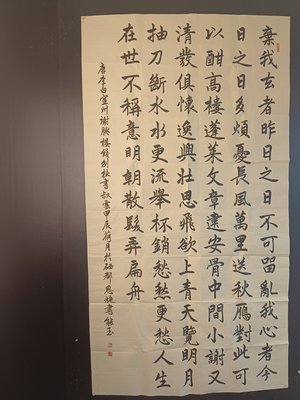 棄我去者昨日之日不可留亂我心者今
日之日多煩憂長風萬里送秋鴈對此可
以酣高樓蓬萊文章建安骨中間小謝又
清發俱懷逸興壯思飛欲上青天覽明月
抽刀斷水水更流舉杯銷愁愁更愁人生
在世不稱意明朝散髮弄扁舟
唐李白宣州謝朓樓餞別校書叔雲甲辰荷月於硒都恩施書能玉